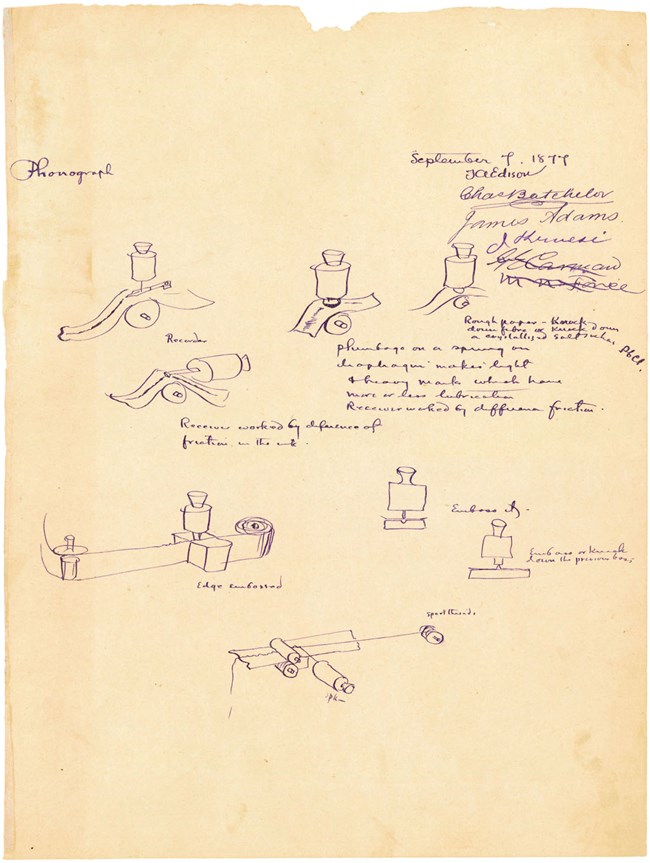 Phonograph
September 7. 1877
TAEdison
Chas Batchelor
James Adams.
J Kruesi
Rough paper - Knock
down fibre or Knock down
a crystallized salt
Recorder
plumbago on a spring on
diaphragm makes light
& heavy marks which have
more or less lubrication
Receiver worked by difference friction.
Receiver worked by difference of
friction in the ink.
Emboss it.
Emboss or Knock
down the previous
Edge embossed
spool thread.